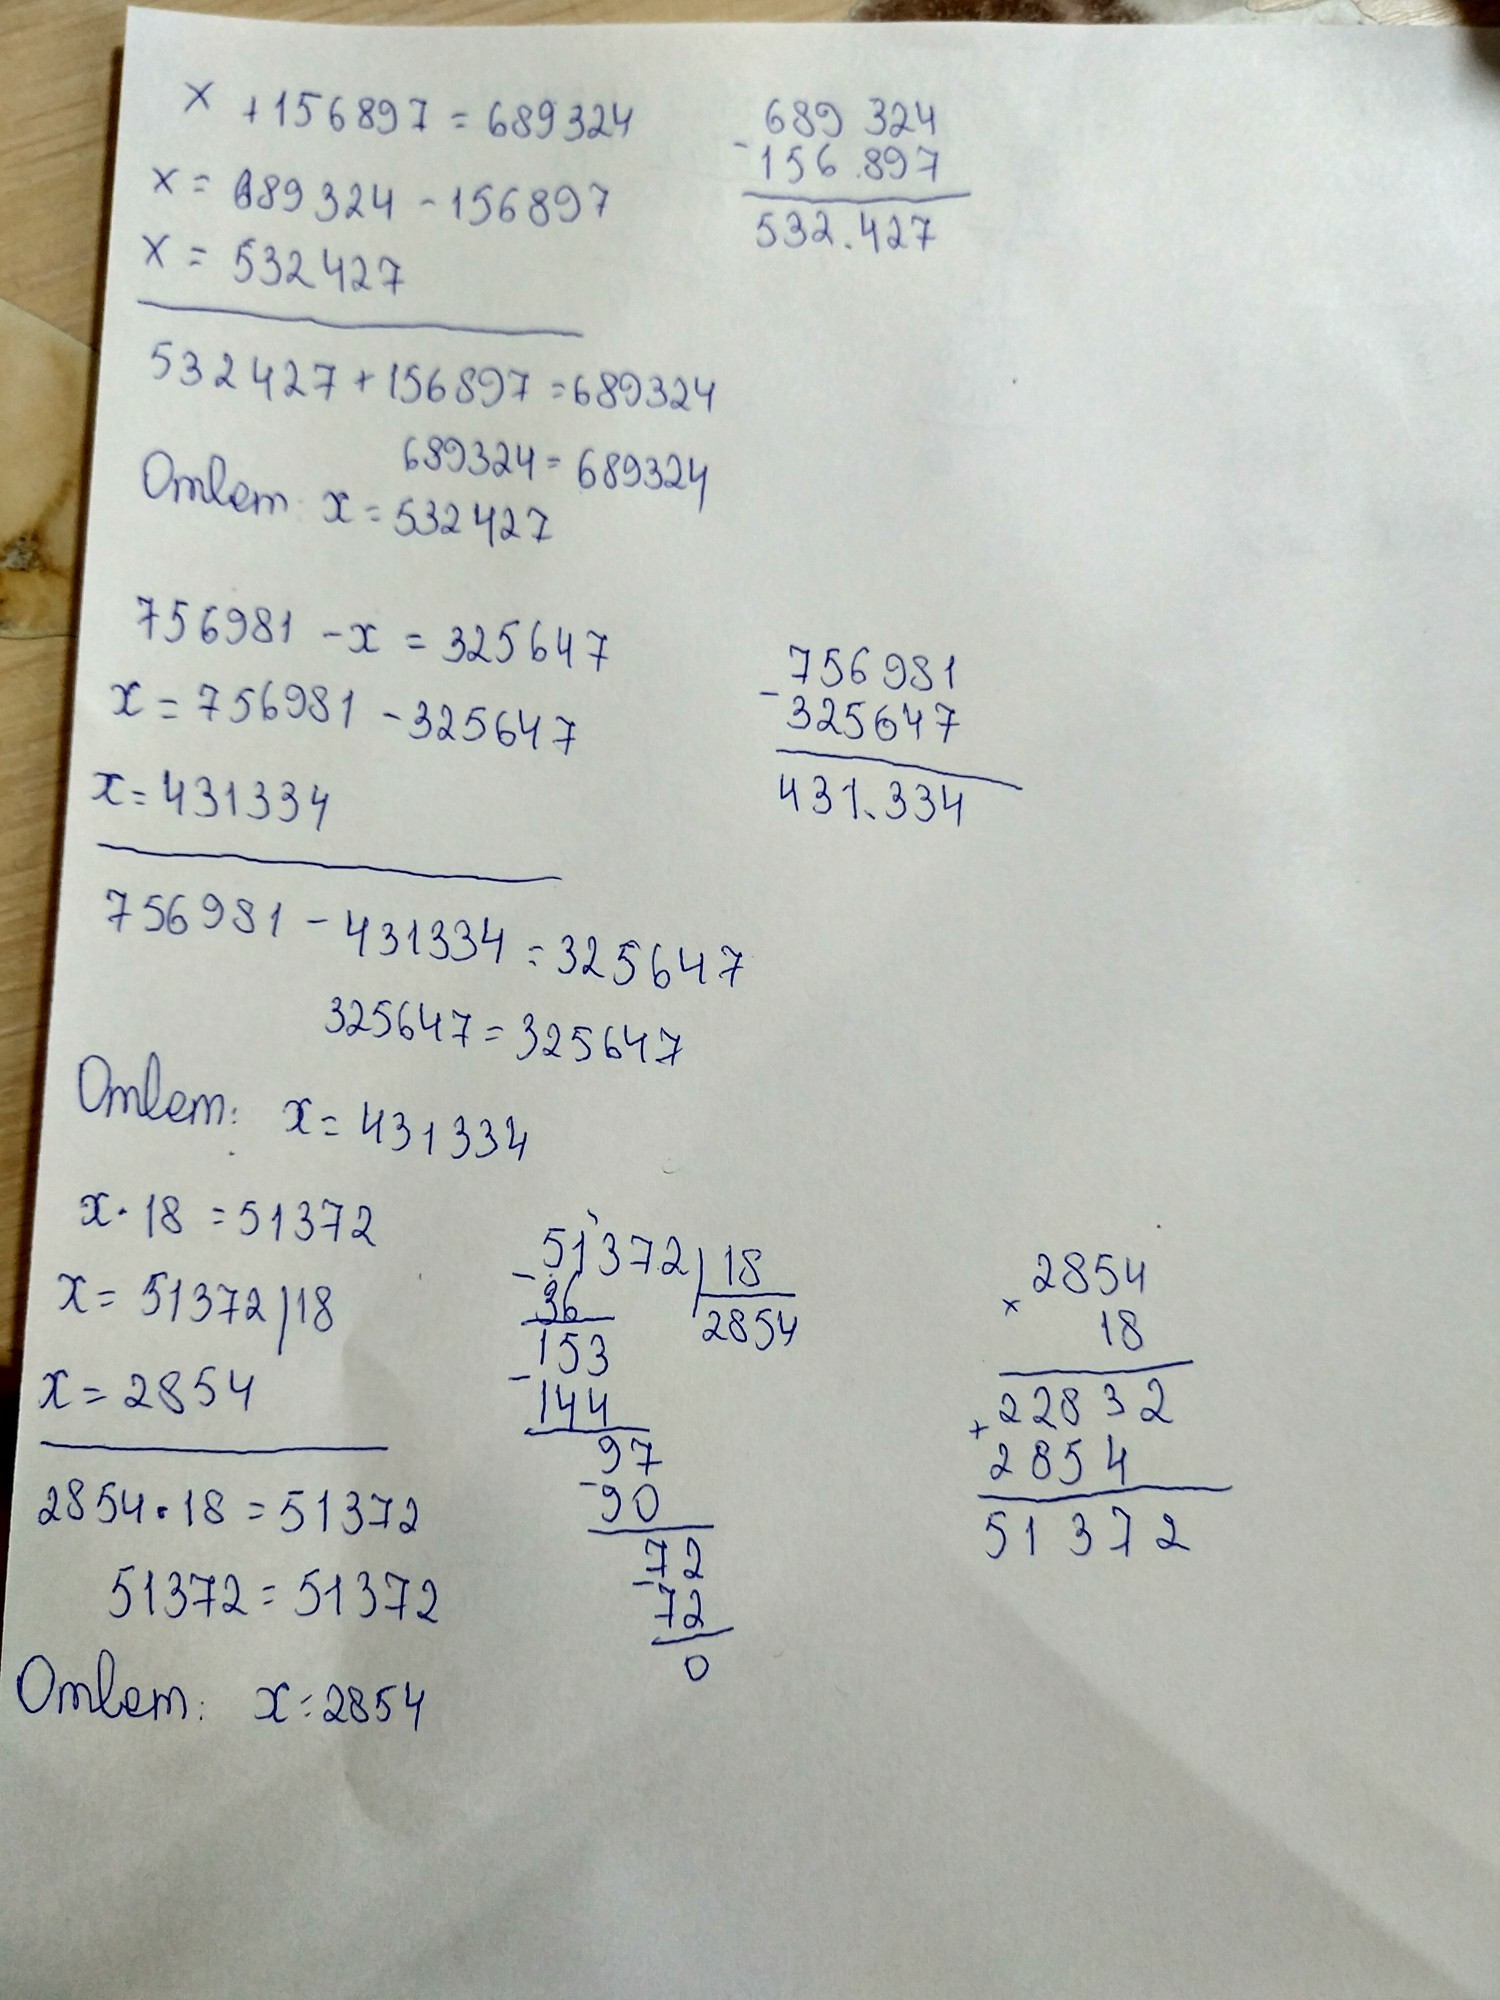 x + 156897 = 689324
x = 689324 - 156897
x = 532427
689 324
- 156.897
532.427
532427 + 156897 = 689324
689324 = 689324
Ответ: x = 532427
756981 - x = 325647
x = 756981 - 325647
x = 431334
756981
- 325647
431.334
756981 - 431334 = 325647
325647 = 325647
Ответ: x = 431334
x · 18 = 51372
x = 51372/18
x = 2854
51372 | 18
- 36
2854
153
- 144
97
- 90
72
- 72
0
2854
x 18
22832
+ 2854
51372
2854 · 18 = 51372
51372 = 51372
Ответ: x = 2854